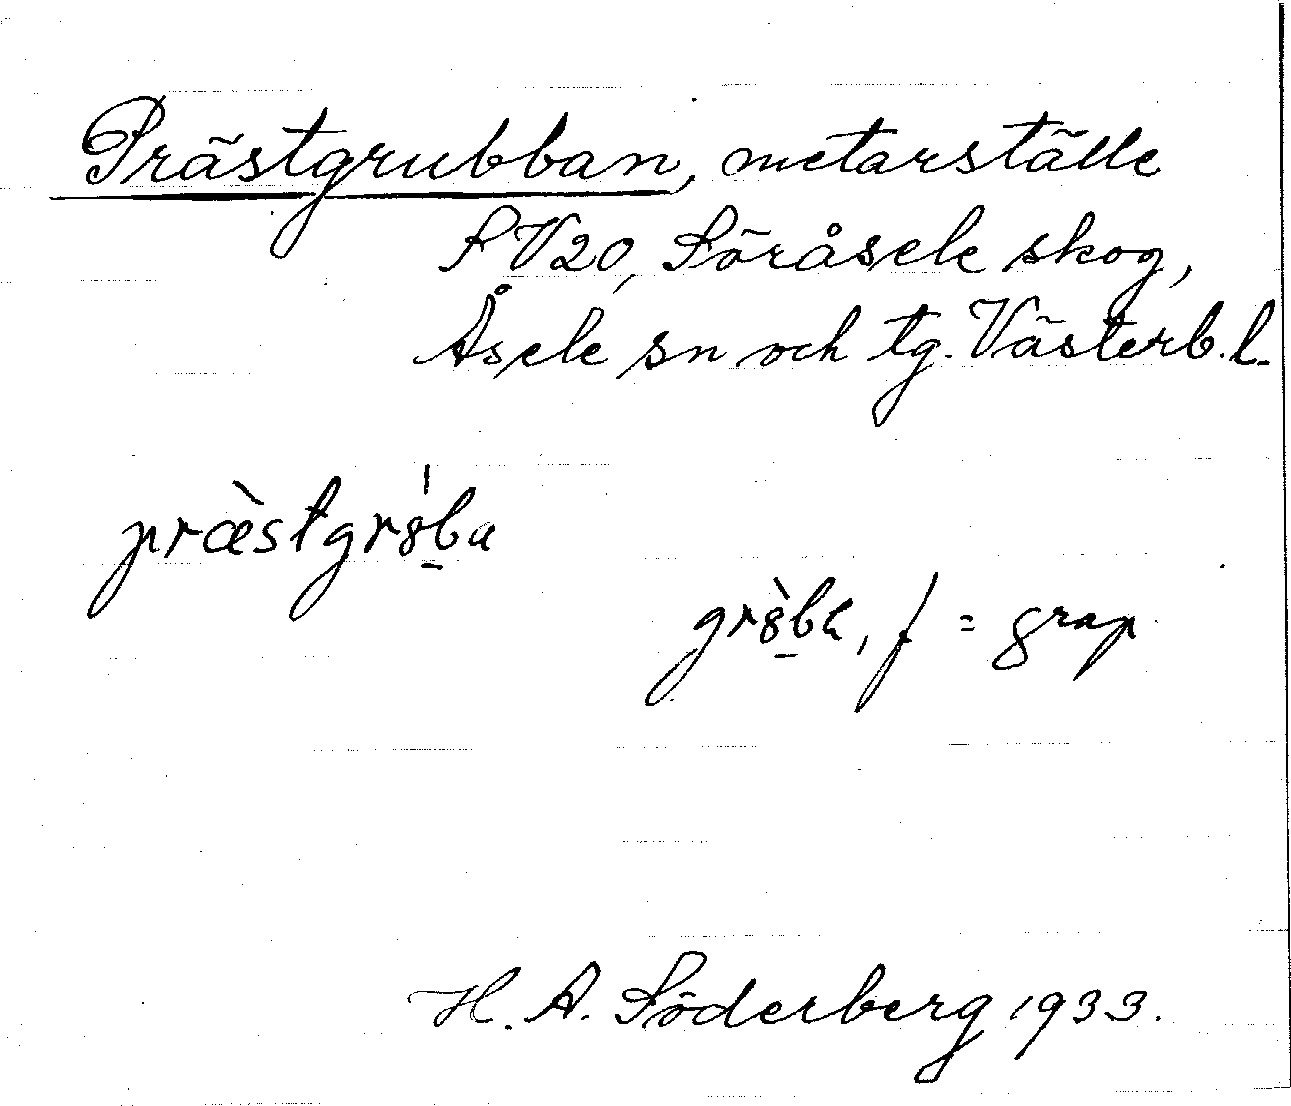 Prästgrubban, metarställe
SV20, Söråsele skog,
Åsele sn och tg. Västerb.l.
præ̀stgr8̱́ba
gr8̱̀ba, f = grap
H. A. Söderberg 1933.